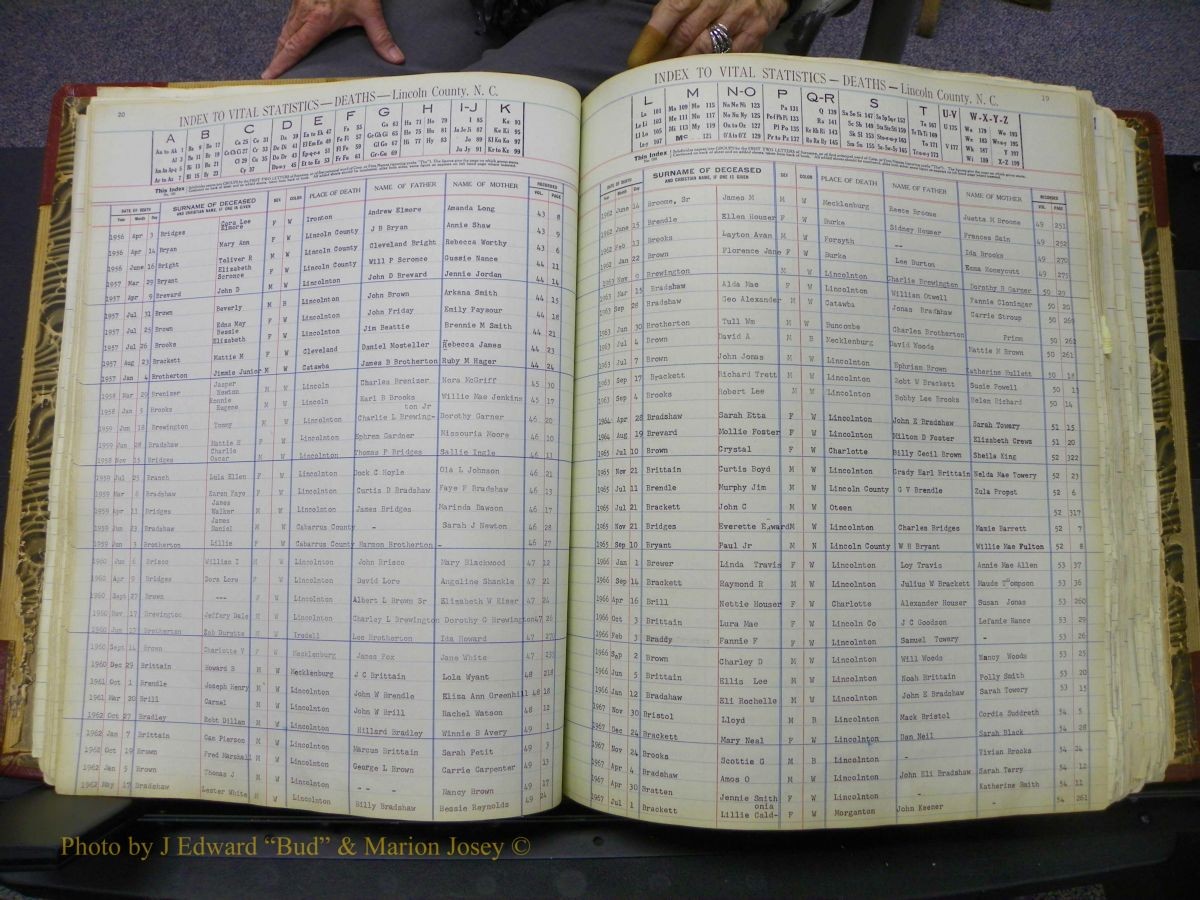 20
INDEX TO VITAL STATISTICS — DEATHS — Lincoln County, N. C.
A B C D E F G H I-J K
This Index
DATE OF DEATH SURNAME OF DECEASED AND CHRISTIAN NAME, IF ONE IS GIVEN SEX COLOR PLACE OF DEATH NAME OF FATHER NAME OF MOTHER RECORDED
Year Month Day VOL. PAGE
1956 Apr 3 Bridges Cora Lee Elmore F W Ironton Andrew Elmore Amanda Long 43 8
1956 Apr 14 Bryan Mary Ann F W Lincoln County J B Bryan Annie Shaw 43 9
1956 June 16 Bright Toliver R M W Lincoln County Cleveland Bright Rebecca Worthy 43 6
1957 Mar 29 Bryant Elizabeth Scronce F W Lincoln County Will P Scronce Gussie Nance 44 11
1957 Apr 9 Brevard John D M W Lincoln County John D Brevard Jennie Jordan 44 14
1957 Jul 31 Brown Beverly M B Lincolnton John Brown Arkana Smith 44 15
1957 Jul 25 Brown Edna May F W Lincolnton John Friday Emily Paysour 44 18
1957 Jul 26 Brooks Bessie Elizabeth F W Lincolnton Jim Beattie Brennie M Smith 44 21
1957 Aug 23 Brackett Mattie M F W Cleveland Daniel Mosteller Rebecca James 44 23
1957 Jan 4 Brotherton Jimmie Junior M W Catawba James B Brotherton Ruby M Hager 44 24
1958 Mar 29 Brenizer Jasper Newton M W Lincoln Charles Brenizer Nora McGriff 45 30
1958 Jan 5 Brooks Ronnie Eugene M W Lincoln Earl B Brooks Willie Mae Jenkins 45 17
1958 Jun 18 Brewington Tommy M W Lincolnton Charlie L Brewington Jr Dorothy Garner 46 20
1959 Jun 28 Bradshaw Mattie H F W Lincolnton Ephrem Gardner Missouria Moore 46 10
1958 Nov 15 Bridges Charlie Oscar M W Lincolnton Thomas P Bridges Sallie Ingle 46 13
1959 Jul 25 Branch Lula Ellen F W Lincolnton Dock C Hoyle Ola L Johnson 46 21
1959 Mar 8 Bradshaw Karen Faye F W Lincolnton Curtis D Bradshaw Faye F Bradshaw 46 13
1959 Apr 11 Bridges James Walker M W Lincolnton James Bridges Marinda Dawson 46 17
1959 Jun 23 Bradshaw James Daniel M W Cabarrus County - Sarah J Newton 46 28
1959 Jun 3 Brotherton Lillie F W Cabarrus County Harmon Brotherton - 46 27
1960 Jun 6 Brisco William I M W Lincolnton John Brisco Mary Blackwood 47 12
1960 Apr 9 Bridges Dora Lore F W Lincolnton David Lore Angeline Shankle 47 21
1960 Sept 27 Brown --- F W Lincolnton Albert L Brown Sr Elizabeth W Kiser 47 24
1960 Nov 17 Brewington Jeffery Dale M W Lincolnton Charley L Brewington Dorothy G Brewington 47 26
1960 Jun 22 Brotherton Zeb Durette M W Iredell Lee Brotherton Ida Howard 47 272
1960 Sept 14 Brown Charlotte V F W Mecklenburg James Fox Jane White 47 231
1960 Dec 29 Brittain Howard B M W Mecklenburg J C Brittain Lola Wyant 48 218
1961 Oct 1 Brendle Joseph Henry M W Lincolnton John W Brendle Eliza Ann Greenhill 48 18
1961 Mar 30 Brill Carmel M W Lincolnton John W Brill Rachel Watson 48 12
1962 Oct 27 Bradley Robt Dillan M W Lincolnton Hillard Bradley Winnie B Avery 49 1
1962 Jan 7 Brittain Can Pierson M W Lincolnton Marcus Brittain Sarah Petit 49 3
1962 Oct 19 Brown Fred Marshall M W Lincolnton George L Brown Carrie Carpenter 49 13
1962 Jan 5 Brown Thomas J M W Lincolnton - - - Nancy Brown 49 17
1962 May 17 Bradshaw Lester White M W Lincolnton Billy Bradshaw Bessie Reynolds 49 24
INDEX TO VITAL STATISTICS — DEATHS — Lincoln County, N. C.
19
L M N-O P Q-R S T U-V W-X-Y-Z
This Index
DATE OF DEATH SURNAME OF DECEASED AND CHRISTIAN NAME, IF ONE IS GIVEN SEX COLOR PLACE OF DEATH NAME OF FATHER NAME OF MOTHER RECORDED
Year Month Day VOL. PAGE
1962 June 14 Broome, Sr James M M W Mecklenburg Reece Broome Juetta M Broome 49 251
1962 June 15 Brendle Ellen Houser F W Burke Sidney Houser Frances Sain 49 252
1962 Feb 13 Brooks Layton Avan M W Forsyth -- Ida Brooks 49 270
1962 Jan 22 Brown Florence Jane F W Burke Lee Burton Emma Honeycutt 49 275
1963 Nov 9 Brewington M W Lincolnton Charlie Brewington Dorothy B Garner 50 20
1963 Mar 15 Bradshaw Alda Mae F W Lincolnton Willian Otwell Fannie Cloninger 50 20
1963 Sep 28 Bradshaw Geo Alexander M W Catawba Jonas Bradshaw Carrie Stroup 50 269
1963 Jun 30 Brotherton Tull Wm M W Buncombe Charles Brotherton Prism 50 262
1963 Jul 4 Brown David A M B Mecklenburg David Woods Mattie M Brown 50 261
1963 Jul 7 Brown John Jonas M W Lincolnton Ephrian Brown Katherine Hullett 50 18
1963 Sep 17 Brackett Richard Trett M W Lincolnton Robt W Brackett Susie Powell 50 1
1963 Sep 4 Brooks Robert Lee M W Lincolnton Bobby Lee Brooks Helen Richard 50 14
1964 Apr 28 Bradshaw Sarah Etta F W Lincolnton John E Bradshaw Sarah Towery 51 15
1964 Aug 19 Brevard Mollie Foster F W Lincolnton Milton D Foster Elizabeth Crews 51 20
1965 Jul 10 Brown Crystal F W Charlotte Billy Cecil Brown Sheila King 52 322
1965 Nov 21 Brittain Curtis Boyd M W Lincolnton Grady Earl Brittain Nelda Mae Towery 52 23
1965 Jul 11 Brendle Murphy Jim M W Lincoln County G V Brendle Zula Propst 52 6
1965 Jul 21 Brackett John C M W Oteen 52 317
1965 Nov 21 Bridges Everette Edward M W Lincolnton Charles Bridges Mamie Barrett 52 7
1965 Sep 10 Bryant Paul Jr M N Lincoln County W H Bryant Willie Mae Fulton 52 8
1966 Jan 1 Brewer Linda Travis F W Lincolnton Loy Travis Annie Mae Allen 53 37
1966 Sep 14 Brackett Raymond R M W Lincolnton Julius W Brackett Maude Thompson 53 36
1966 Apr 16 Brill Nettie Houser F W Charlotte Alexander Houser Susan Jonas 53 260
1966 Oct 3 Brittain Lura Mae F W Lincoln Co J C Goodson LeFamie Hance 53 29
1966 Feb 3 Braddy Fannie F F W Lincolnton Samuel Towery - 53 26
1966 Sep 2 Brown Charley D M W Lincolnton Will Woods Nancy Woods 53 25
1966 Jun 5 Brittain Ellis Lee M W Lincolnton Noah Brittain Polly Smith 53 20
1966 Jan 12 Bradshaw Eli Rochelle M W Lincolnton John E Bradshaw Sarah Towery 53 15
1967 Nov 30 Bristol Lloyd M B Lincolnton Mack Bristol Cordie Suddreth 54 5
1967 Dec 24 Brackett Mary Neal F W Lincolnton Dan Neil Sarah Black 54 28
1967 Nov 24 Brooks Scottie G M B Lincolnton - Vivian Brooks 54 24
1967 Apr 4 Bradshaw Amos O M W Lincolnton John Eli Bradshaw Sarah Tarry 54 12
1967 Apr 30 Bratten Jennie Smith F W Lincolnton - Katherine Smith 54 11
1967 Jul 1 Brackett Lillie Caldonia F W Morganton John Keener - 54 261
Photo by J Edward “Bud” & Marion Josey ©